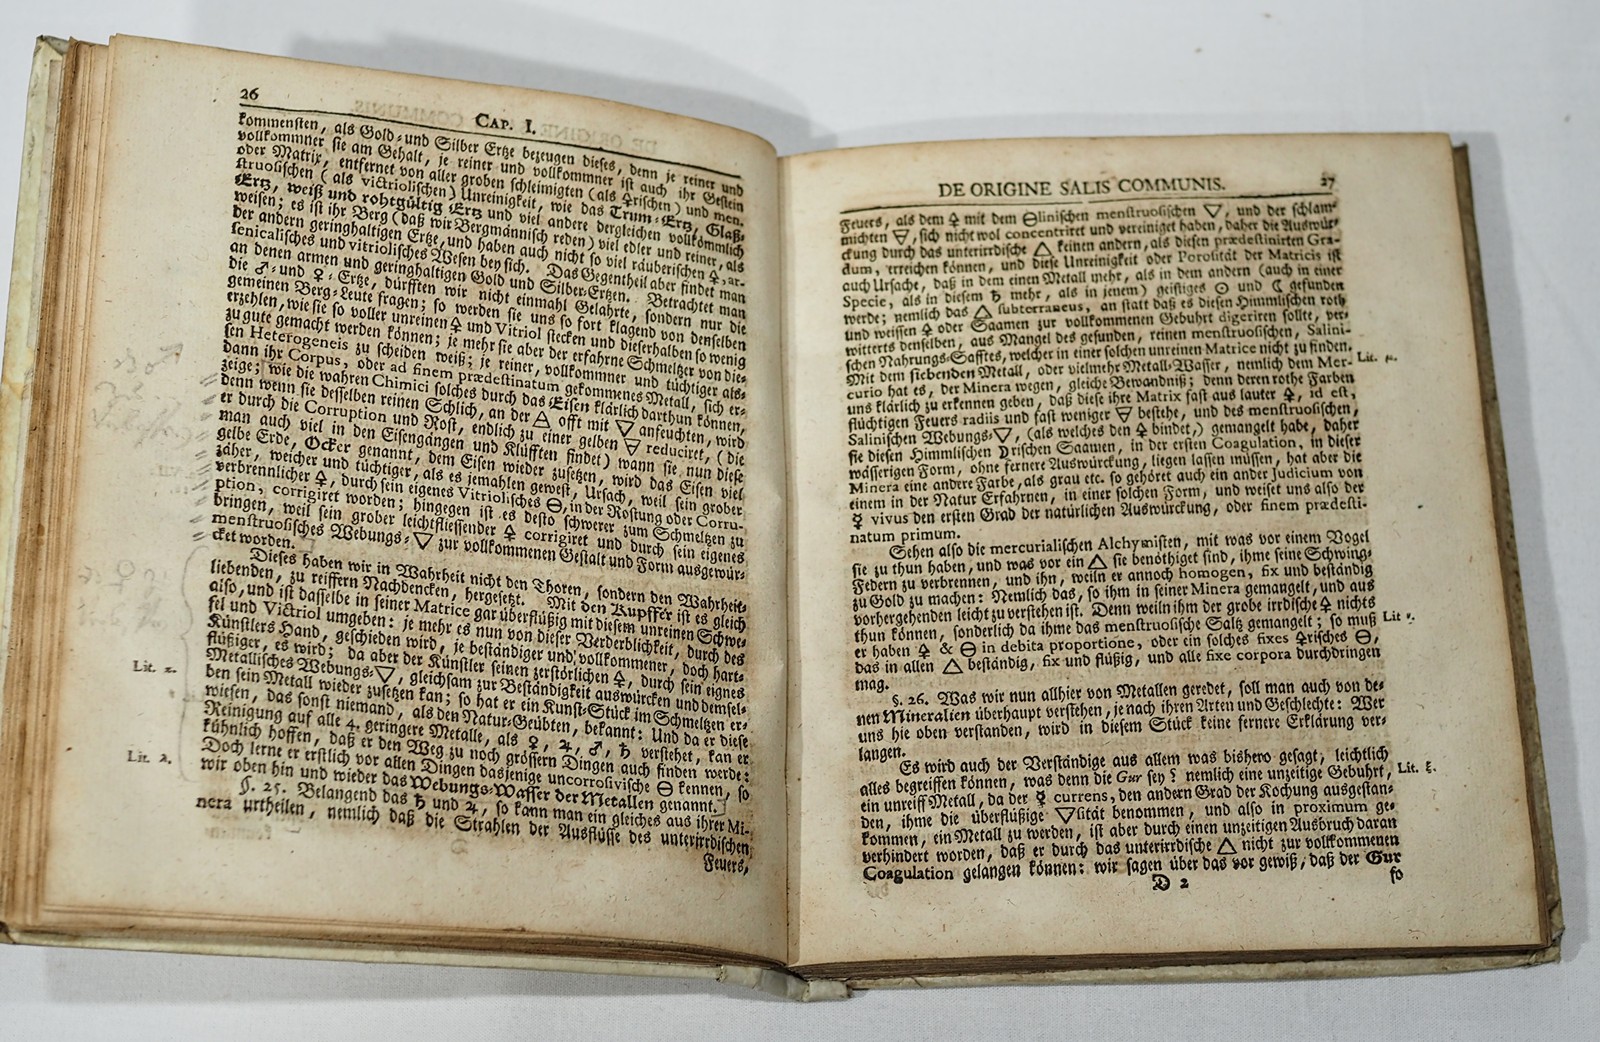 26
CAP. I.
kommensten, als Gold- und Silber Ertze bezeugen dieses, denn je reiner und
vollkommner sie am Gehalt, je reiner und vollkommner ist auch ihr Gestein
oder Matrix, entfernet von aller groben schleimigten (als ♀rischen) und men-
struosischen (als victriolischen) Unreinigkeit, wie das Trum-Ertz, Glaß-
Ertz, weiß und rohtgültig Ertz und viel andere dergleichen vollkömmlich
weisen; es ist ihr Berg (daß wir Bergmännisch reden) viel edler und reiner, als
der andern geringhaltigen Ertze, und haben auch nicht so viel räuberischen ♀, ar-
senicalisches und vitriolisches Wesen bey sich. Das Gegentheil aber findet man
an denen armen und geringhaltigen Gold und Silber-Ertzen. Betrachtet man
die ♂- und ♀-Ertze, dürfften wir nicht einmahl Gelahrte, sondern nur die
gemeinen Berg-Leute fragen; so werden sie uns so fort klagend von denselben
erzehlen, wie sie so voller unreinen ♀ und Vitriol stecken und dieserhalben so wenig
zu gute gemacht werden können; je mehr sie aber der erfahrne Schmeltzer von die-
sen Heterogeneis zu scheiden weiß; je reiner, vollkommner und tüchtiger als-
dann ihr Corpus, oder ad finem prædestinatum gekommenes Metall, sich er-
zeige; wie die wahren Chimici solches durch das Eisen klärlich darthun können,
denn wenn sie desselben reinen Schlich, an der 🜁 offt mit 🜄 anfeuchten, wird
er durch die Corruption und Rost, endlich zu einer gelben 🜃 reduciret, (die
man auch viel in den Eisengängen und Klüfften findet) wann sie nun diese
gelbe Erde, Ocker genannt, dem Eisen wieder zusetzen, wird das Eisen viel
zäher, weicher und tüchtiger, als es jemahlen gewest, Ursach, weil sein grober
verbrennlicher ♀, durch sein eigenes Vitriolisches 🜔, in der Rostung oder Corru-
ption, corrigiret worden; hingegen ist es desto schwerer zum Schmeltzen zu
bringen, weil sein grober leichtfliessender ♀ corrigiret und durch sein eigenes
menstruosisches Webungs-🜄 zur vollkommenen Gestalt und Form ausgewür-
cket worden.
Dieses haben wir in Wahrheit nicht den Thoren, sondern den Wahrheit-
liebenden, zu reiffern Nachdencken, hergesetzt. Mit den Kupffer ist es gleich
also, und ist dasselbe in seiner Matrice gar überflüßig mit diesem unreinen Schwe-
fel und Victriol umgeben: je mehr es nun von dieser Verderblichkeit, durch des
Künstlers Hand, geschieden wird, je beständiger und vollkommener, doch hart-
flüßiger, es wird; da aber der Künstler seinen zerstörlichen ♀, durch sein eignes
Metallisches Webungs-🜄, gleichsam zur Beständigkeit auswürcken und demsel-
Lit. ϰ.
ben sein Metall wieder zusetzen kan; so hat er ein Kunst-Stück im Schmeltzen er-
wiesen, das sonst niemand, als den Natur-Geübten, bekannt: Und da er diese
Reinigung auf alle 4. geringere Metalle, als ♀, ♃, ♂, ♄ verstehet, kan er
kühnlich hoffen, daß er den Weg zu noch grössern Dingen auch finden werde:
Lit. λ.
Doch lerne er erstlich vor allen Dingen dasjenige uncorrosivische 🜔 kennen, so
wir oben hin und wieder das Webungs-Wasser der Metallen genannt.
§. 25. Belangend das ♄ und ♃, so kann man ein gleiches aus ihrer Mi-
nera urtheilen, nemlich daß die Strahlen der Ausflüsse des unterirrdischen
Feuers,
DE ORIGINE SALIS COMMUNIS.
27
Feuers, als dem ♀ mit dem 🜔linischen menstruosischen 🜄, und der schlam-
michten 🜃, sich nicht wol concentriret und vereiniget haben, daher die Auswür-
ckung durch das unterirrdische 🜂 keinen andern, als diesen prædestinirten Gra-
dum, erreichen können, und diese Unreinigkeit oder Porosität der Matricis ist
auch Ursache, daß in dem einen Metall mehr, als in dem andern (auch in einer
Specie, als in diesem ♄ mehr, als in jenem) geistiges ☉ und ☾ gefunden
werde; nemlich das 🜂 subterraneus, an statt daß es diesen Himmlischen roth
und weissen ♀ oder Saamen zur vollkommenen Gebuhrt digeriren sollte, ver-
witterts denselben, aus Mangel des gesunden, reinen menstruosischen, Salini-
schen Nahrungs-Safftes, welcher in einer solchen unreinen Matrice nicht zu finden.
Mit dem siebenden Metall, oder vielmehr Metall-Wasser, nemlich dem Mer-
Lit. μ.
curio hat es, der Minera wegen, gleiche Bewandniß; denn deren rothe Farben
uns klärlich zu erkennen geben, daß diese ihre Matrix fast aus lauter ♀, id est,
flüchtigen Feuers radiis und fast weniger 🜃 bestehe, und des menstruosischen,
Salinischen Webungs-🜄, (als welches den ♀ bindet,) gemangelt habe, daher
sie diesen Himmlischen ♀rischen Saamen, in der ersten Coagulation, in dieser
wässerigen Form, ohne fernere Auswürckung, liegen lassen müssen, hat aber die
Minera eine andere Farbe, als grau etc. so gehöret auch ein ander Judicium von
einem in der Natur Erfahrnen, in einer solchen Form, und weiset uns also der
☿ vivus den ersten Grad der natürlichen Auswürckung, oder finem prædesti-
natum primum.
Sehen also die mercurialischen Alchymisten, mit was vor einem Vogel
sie zu thun haben, und was vor ein 🜂 sie benöthiget sind, ihme seine Schwing-
Federn zu verbrennen, und ihn, weiln er annoch homogen, fix und beständig
zu Gold zu machen: Nemlich das, so ihm in seiner Minera gemangelt, und aus
vorhergehenden leicht zu verstehen ist. Denn weiln ihm der grobe irrdische ♀ nichts
thun können, sonderlich da ihme das menstruosische Saltz gemangelt; so muß
Lit. ν.
er haben ♀ & 🜔 in debita proportione, oder ein solches fixes ♀risches 🜔,
das in allen 🜂 beständig, fix und flüßig, und alle fixe corpora durchdringen
mag.
§. 26. Was wir nun allhier von Metallen geredet, soll man auch von de-
nen Mineralien überhaupt verstehen, je nach ihren Arten und Geschlechte: Wer
uns hie oben verstanden, wird in diesem Stück keine fernere Erklärung ver-
langen.
Es wird auch der Verständige aus allem was bishero gesagt, leichtlich
alles begreiffen können, was denn die Gur sey? nemlich eine unzeitige Gebuhrt,
Lit. ξ.
ein unreiff Metall, da der ☿ currens, den andern Grad der Kochung ausgestan-
den, ihme die überflüßige 🜄sität benommen, und also in proximum ge-
kommen, ein Metall zu werden, ist aber durch einen unzeitigen Ausbruch daran
verhindert worden, daß er durch das unterirrdische 🜂 nicht zur vollkommenen
Coagulation gelangen können: wir sagen über das vor gewiß, daß der Gur
D 2
so